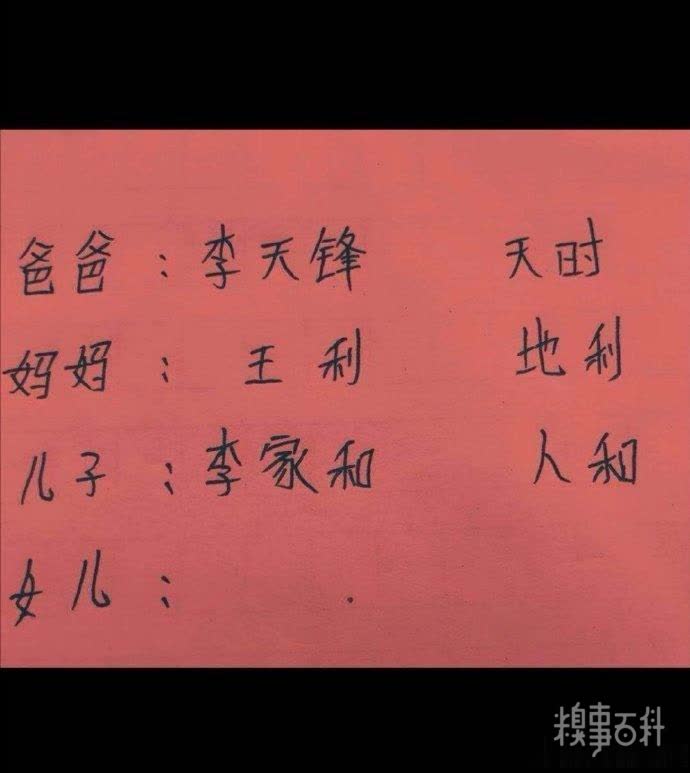 爸爸：李天锋 天时
妈妈：王利 地利
儿子：李家和 人和
女儿：
糗事百科